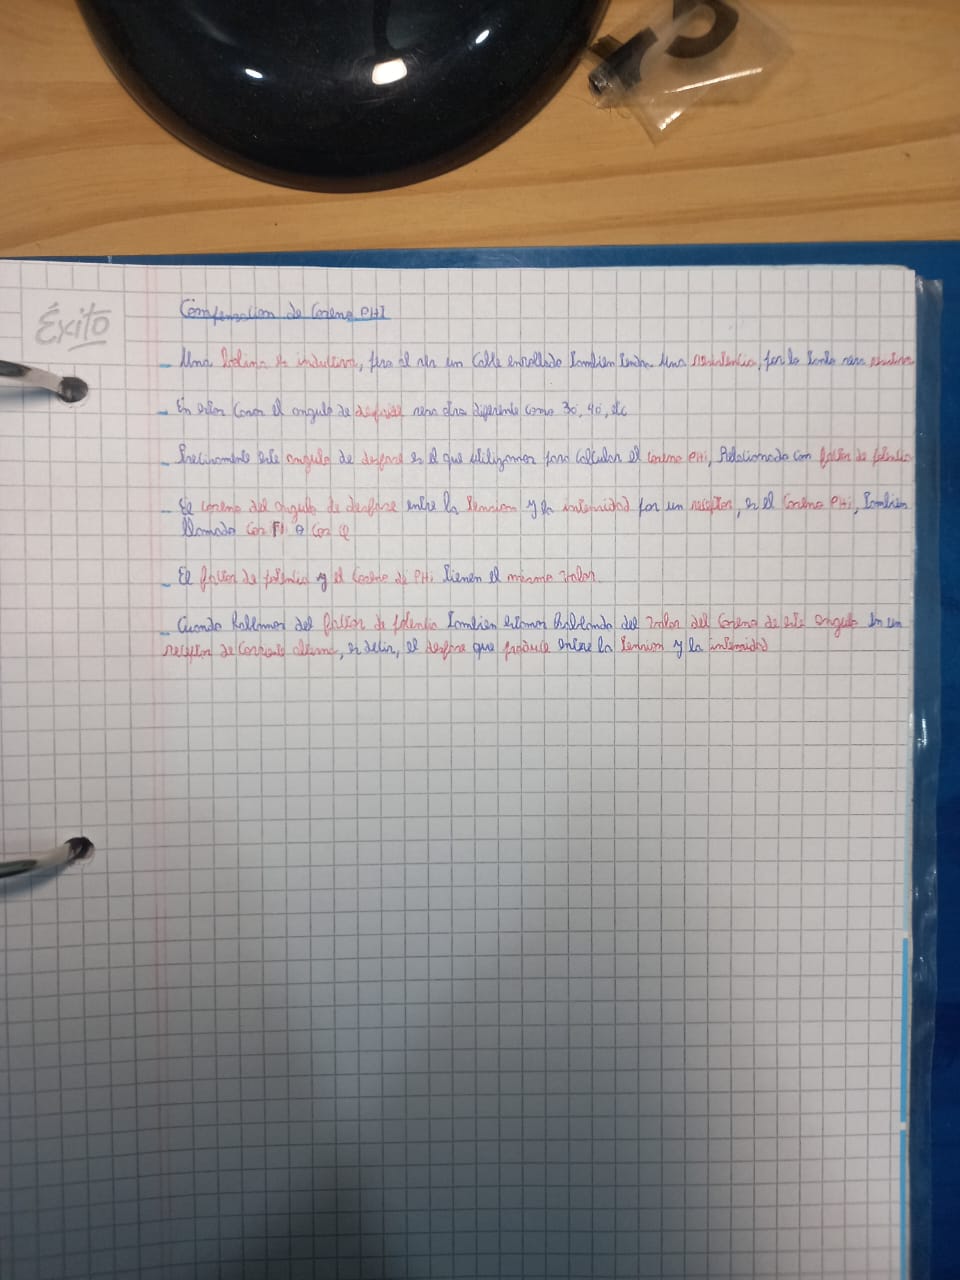 Éxito
Compensacion de Coseno PHI
- Una bobina es inductiva, pero al ser un Cable enrollado también tendra una resistencia, por lo tanto sera
- En estos Casos el angulo de desfase sera otro diferente como 30, 40, etc
- Precisamente este angulo de desfase es el que utilizamos para calcular el coseno PHi, Relacionado con factor de potencia
- El coseno del angulo de desfase entre la tension y la intensidad por un receptor, es el Coseno PHi, también
llamado Cos FI o Cos φ
- El factor de potencia y el Coseno de PHi tienen el mismo valor.
- Cuando hablamos del factor de potencia también estamos hablando del valor del Coseno de este angulo en un
receptor de corriente alterna, es decir, el desfase que produce entre la tension y la intensidad